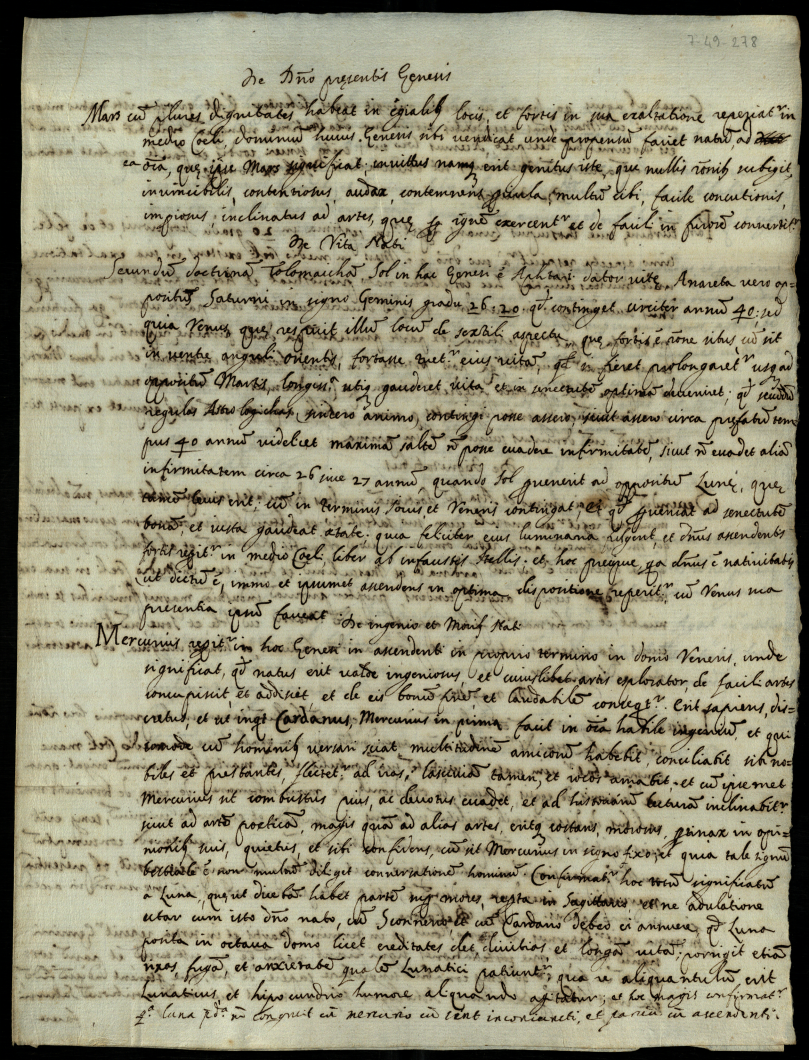 7-49-278
De Dño pręsentis Genesis
Mars cũ plures dignitates habeat in locis, et fortis in sua exaltatione reperiatr in
medio Coeli, dominiũ huius Genesis sibi vendicat unde propensũ faciet natũ ad
ea õia, quę ipse Mars significat; invictus erit genitus iste, qui nullis subigitr,
invincibilis, contentiosus, audax, contemnens multũ cibi, facile concutionis,
impiosus, inclinatus ad artes, quę ignẽ exercentr et de facili in furorẽ convertitr
De Vita Nati
Secundũ doctrinã Sol in hac Genesi ẽ dator vitę, Anareta vero op-
positũ Saturni in signo Geminis gradu 26:20. qđ continget circiter annũ 40: sed
quia Venus, quę respicit illũ locũ de sextili aspectu, quę fortis ẽ situs cũ sit
in ventre anguli orientis, fortasse eius vitã, qđ si fieret prolongaretr usq ad
oppositũ Martis, gauderet vita et in senectutẽ optimã deveniret; qđ secundũ
regulas Astrologichas, sincero animo, contingi posse assero, sicut assero circa prefatũ tem
pus 40 annũ videlicet maximã saltẽ posse evadere infirmitatẽ, sicut evadet aliã
infirmitatem circa 26 sive 27 annũ, quando Sol pervenerit ad oppositũ Lunę, quę
tamẽ levis erit; cũ in terminis Iovis et Veneris contingat. Et qđ perveniat ad senectutẽ
bonã, et iusta gaudeat ætate; quia feliciter eius luminaria et dñus ascendentis
fortis in medio Coeli, liber ab infaustis stellis: et hoc pręcipue, qa dñus ẽ nativitatis
ut dictũ ẽ, immo et ipsumet ascendens in optima dispositione reperitr, cũ Venus sua
presentia ipsũ faveat De ingenio et Morib Nati
Mercurius in hoc Genesi in ascendenti in proprio termino in domo Veneris, unde
significat, qđ natus erit valde ingeniosus et cuiuslibet artis explorator, de facili artes
concupiscit, et addiscet et de eis bonũ finẽ et laudabilẽ consegtr. Erit sapiens, dis-
cretus, et ut inqt Cardanus, Mercurius in prima facit in õia habile ingeniũ, et qui
comode cũ hominib versari sciat multitudinẽ amicorũ habebit, conciliabit sibi no-
biles et prestantes, flectetr ad iras, lasciviã tamen, et iocos amabit. et cũ ipsemet
Mercurius sit combustus pius, ac devotus evadet, et ad historiarũ lecturã inclinabitr
sicut ad artẽ poeticã, magis quã ad alias artes, eritq costans, pertinax in opi-
nionib suis, quietus, et sibi confidens, cũ sit Mercurius in signo fixo, et quia tale signũ
bestiale ẽ non multũ diliget conversationẽ hominũ. Confirmatr hoc totũ significatũ
a Luna, quę ut dicebã habet partẽ mores, in Sagittario et ne adulatione
utar cum isto dño nato, cũ et cũ Cardano debeo ei annuere, qđ Luna
posita in octava domo licet ereditates det, divitias, et longã vitã: porrigit etiã
rixas, fugã, et anxietatẽ qualẽ Lunatici patiuntr; qua re aliquantulũ erit
Lunaticus, et hipocundrio humore aliquando agitatur; et hoc magis confirmatr
qa luna non congruit cũ mercurio cũ sint inconiuncti, et cũ ascendenti.